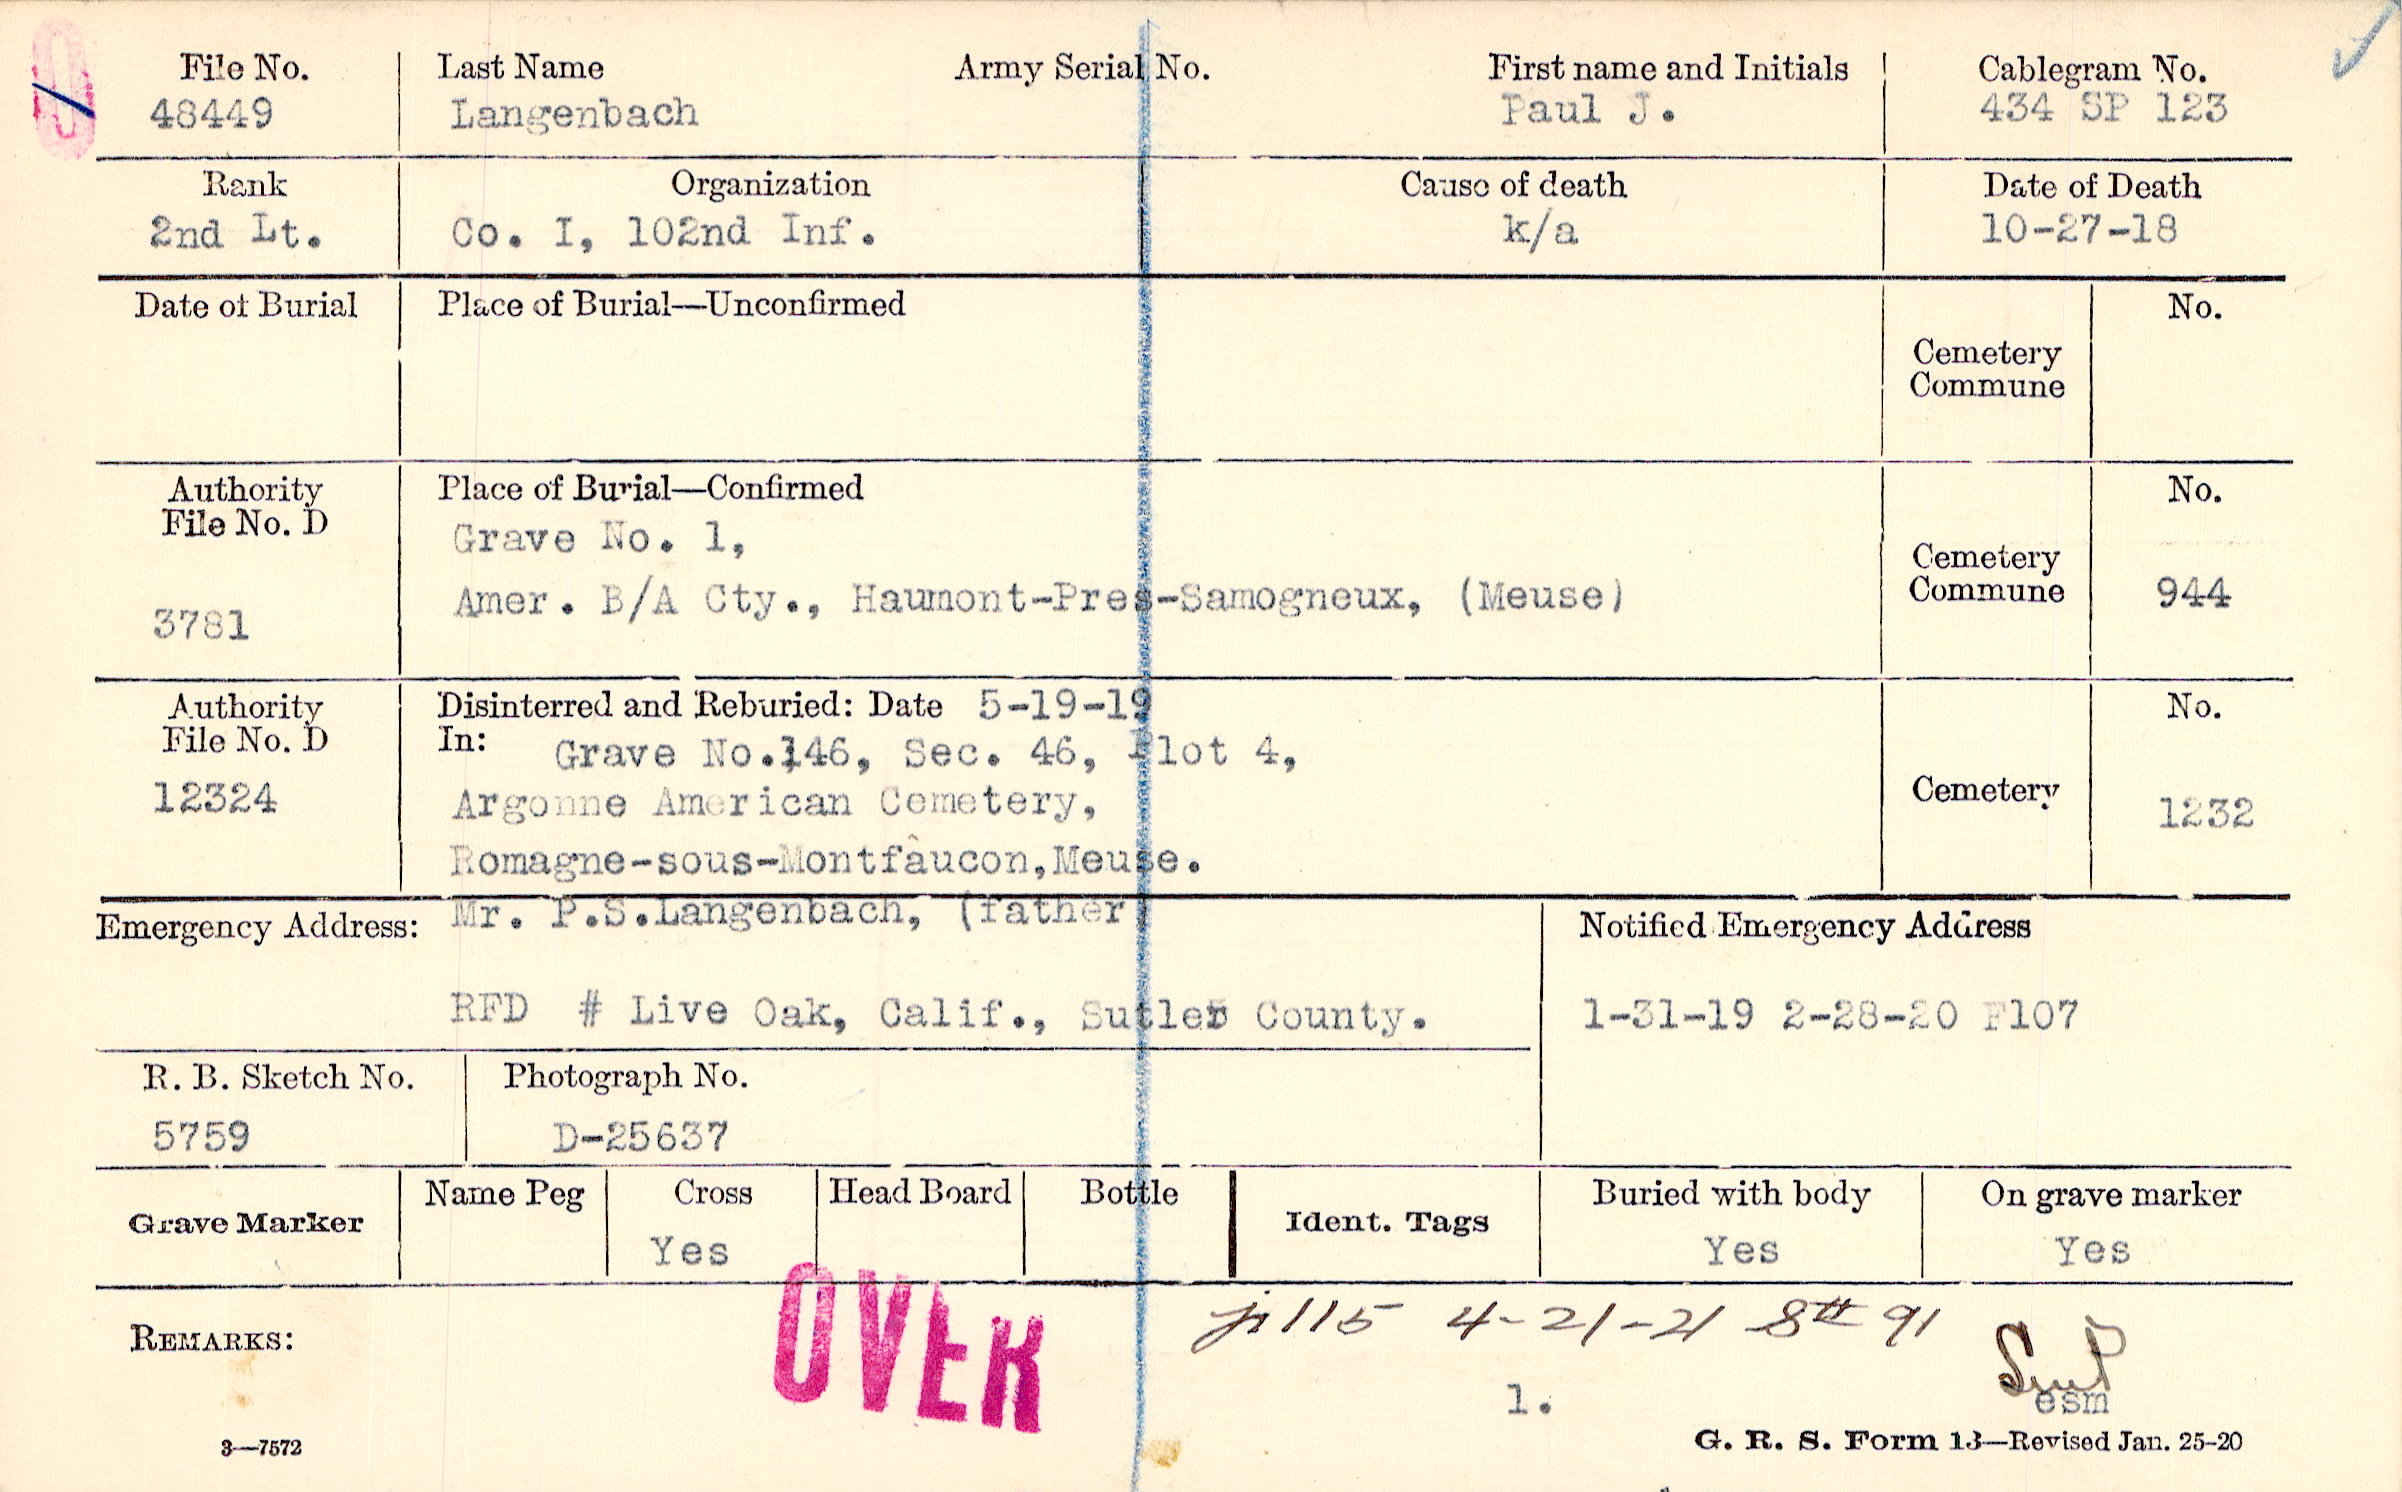 File No. Last Name Army Serial No. First name and Initials Cablegram No.
48449 Langenbach Paul J. 434 SP 123
Rank Organization Cause of death Date of Death
2nd Lt. Co. I, 102nd Inf. k/a 10-27-18
Date of Burial Place of Burial—Unconfirmed No.
Cemetery
Commune
Authority Place of Burial—Confirmed No.
File No. D
Grave No. 1,
Cemetery
Amer. B/A Cty., Haumont-Pres-Samogneux, (Meuse) Commune 944
3781
Authority Disinterred and Reburied: Date 5-19-19 No.
File No. D In: Grave No.146, Sec. 46, Plot 4,
12324 Argonne American Cemetery, Cemetery 1232
Romagne-sous-Montfaucon,Meuse.
Emergency Address: Mr. P.S.Langenbach, (father) Notified Emergency Address
RFD # Live Oak, Calif., Sutler County. 1-31-19 2-28-20 F107
R. B. Sketch No. Photograph No.
5759 D-25637
Grave Marker Name Peg Cross Head Board Bottle Ident. Tags Buried with body On grave marker
Yes Yes Yes
OVER
115 4-21-21 8th 91
REMARKS:
1. esm
3—7572 G. R. S. Form 13—Revised Jan. 25-20